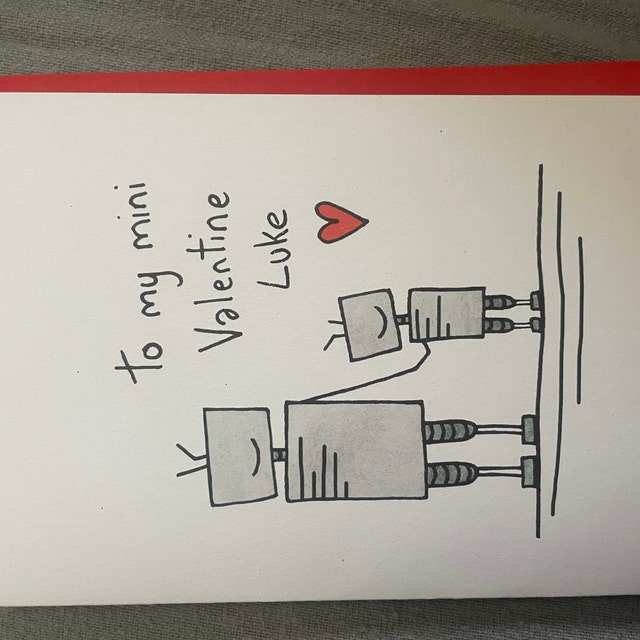 To my mini
Valentine
Luke